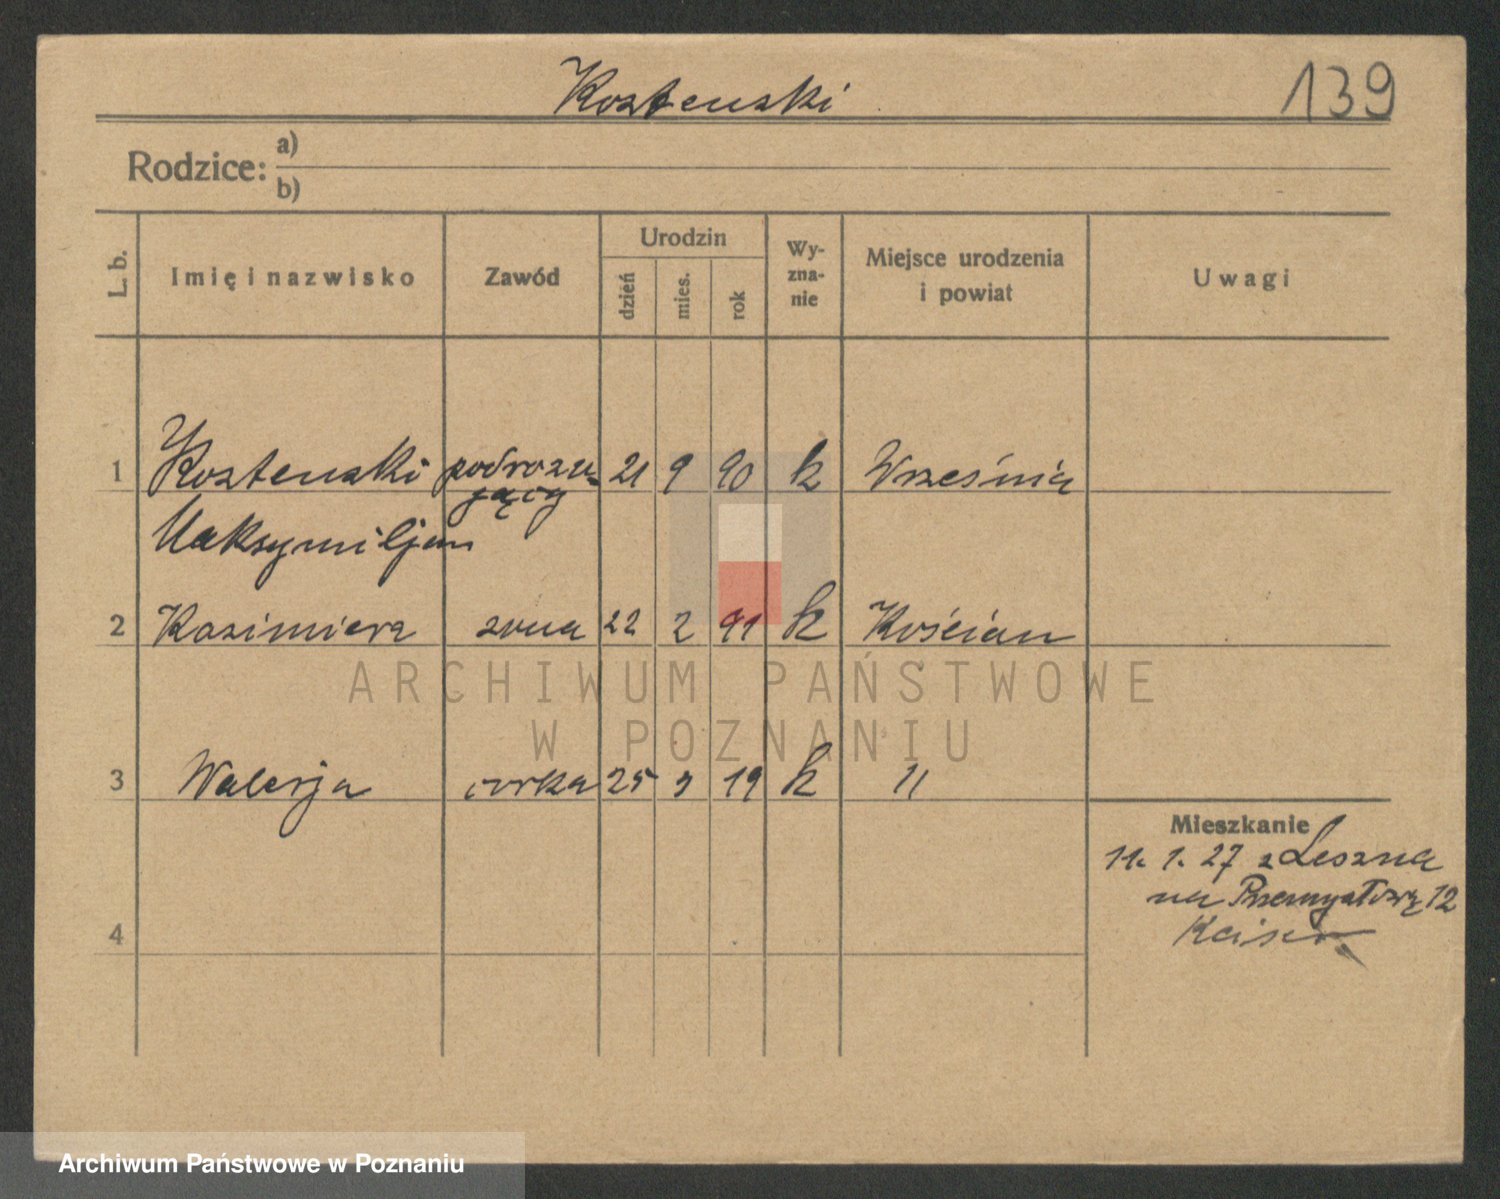 Kostenski
139
Rodzice: a)
b)
L. b.
Imię i nazwisko
Zawód
Urodzin
dzień
mies.
rok
Wy-
zna-
nie
Miejsce urodzenia
i powiat
Uwagi
1 Kostenski podrozu- 21 9 90 k Września
jący
Maksymiljan
2 Kazimiera zona 22 2 91 k Kościan
3 Walerja corka 25 9 19 k 11
4
Mieszkanie
11. 1. 27 z Leszna
na Przemysłową 12
ARCHIWUM PAŃSTWOWE
W POZNANIU
Archiwum Państwowe w Poznaniu